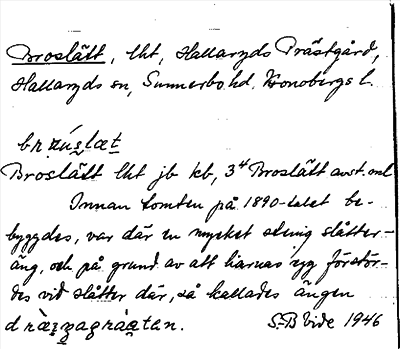 Broslätt, lht, Hallaryds Prästgård,
Hallaryds sn, Sunnerbo hd. Kronobergs l.
Broslätt lht jb kb, 3⁴ Broslätt avst. ml
Innan tomten på 1890-talet be-
byggdes, var där en mycket stenig slåtter-
äng, och på grund av att liarnas egg förstör-
des vid slåtter där, så kallades ängen
S-B Vide 1946